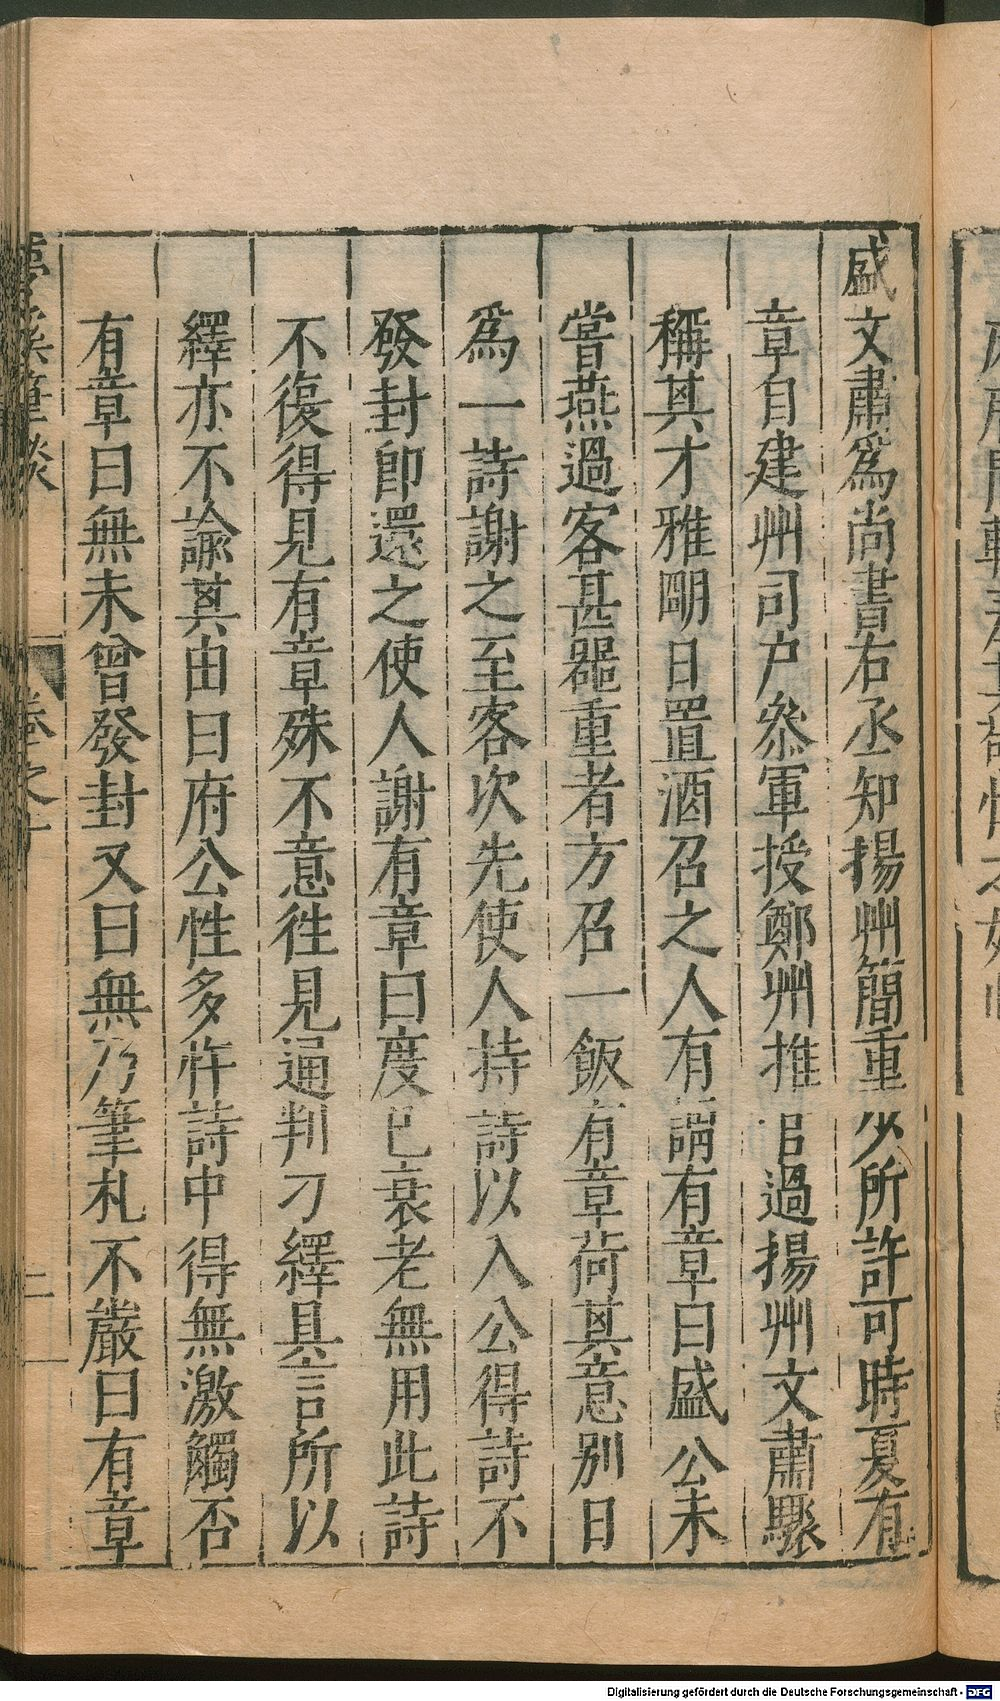 盛文肅爲尚書右丞知揚州簡重少所許可時夏有
章自建州司户叅軍授鄭州推官過揚州文肅驟
稱其才雅明日置酒召之人有謂有章曰盛公未
嘗燕過客甚器重者方召一飯有章荷其意别日
爲一詩謝之至客次先使人持詩以入公得詩不
發封即還之使人謝有章曰度已衰老無用此詩
不復得見有章殊不意徃見通判刁繹具言所以
繹亦不諭其由曰府公性多忤詩中得無激觸否
有章曰無未曾發封又曰無乃筆札不嚴曰有章
夢溪筆談 卷之十
Digitalisierung gefördert durch die Deutsche Forschungsgemeinschaft - DFG